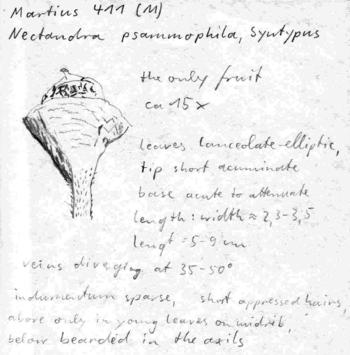 Martius 411 (M)
Nectandra psammophila, Syntypus
the only fruit
ca 15 x
leaves lanceolate-elliptic,
tip short acuminate
base acute to attenuate
length : width ≈ 2,3-3,5
lengt = 5-9 cm
veins diverging at 35-50°
indumentum sparse, short appressed hairs,
above only in young leaves on midrib,
below bearded in the axils